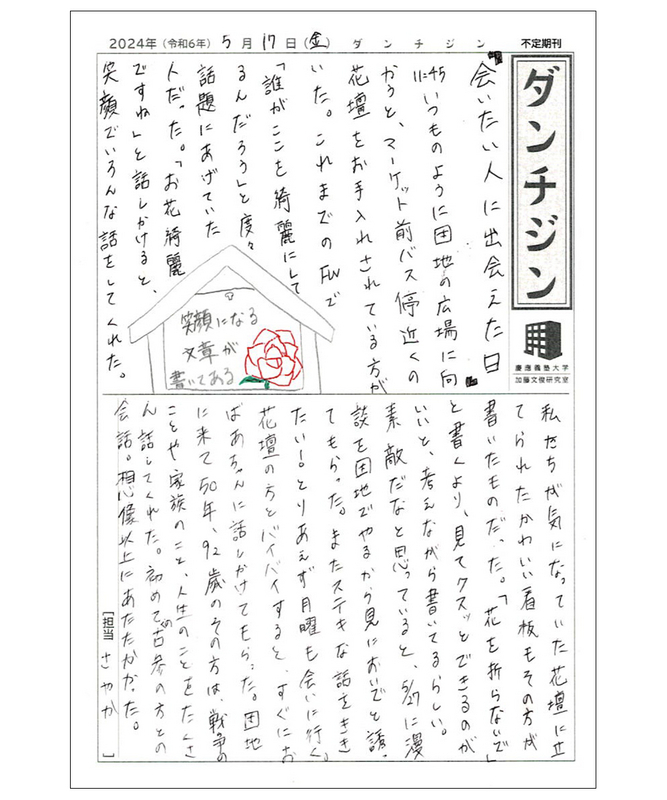 2024年（令和6年）5月17日（金）ダンチジン 不定期刊
ダンチジン
慶應義塾大学
加藤文俊研究室
『会いたい人に出会えた日』
11:45 いつものように団地の広場に向
かうと、マーケット前バス停近くの
花壇をお手入れされている方が
いた。これまでのFWで
「誰がここを綺麗にして
るんだろう」と度々
話題にあげていた
人だった。「お花綺麗
ですね」と話しかけると、
笑顔でいろんな話をしてくれた。
笑顔になる
文章が
書いてある
私たちが気になっていた花壇に立
てられたかわいい看板もその方が
書いたものだった。「花を折らないで」
と書くより、見てクスッとできるのが
いいと、考えながら書いてるらしい。
素敵だなと思っていると、5/27に漫
談を団地でやるから見においでと誘っ
てもらった。またステキな話をきき
たい！とりあえず月曜も会いに行く。
花壇の方とバイバイすると、すぐにお
ばあちゃんに話しかけてもらった。団地
に来て50年、92歳のその方は、戦争の
ことや家族のこと、人生のことをたくさ
ん話してくれた。初めての古参の方との
会話。想像以上にあたたかかった。
［担当 さやか］